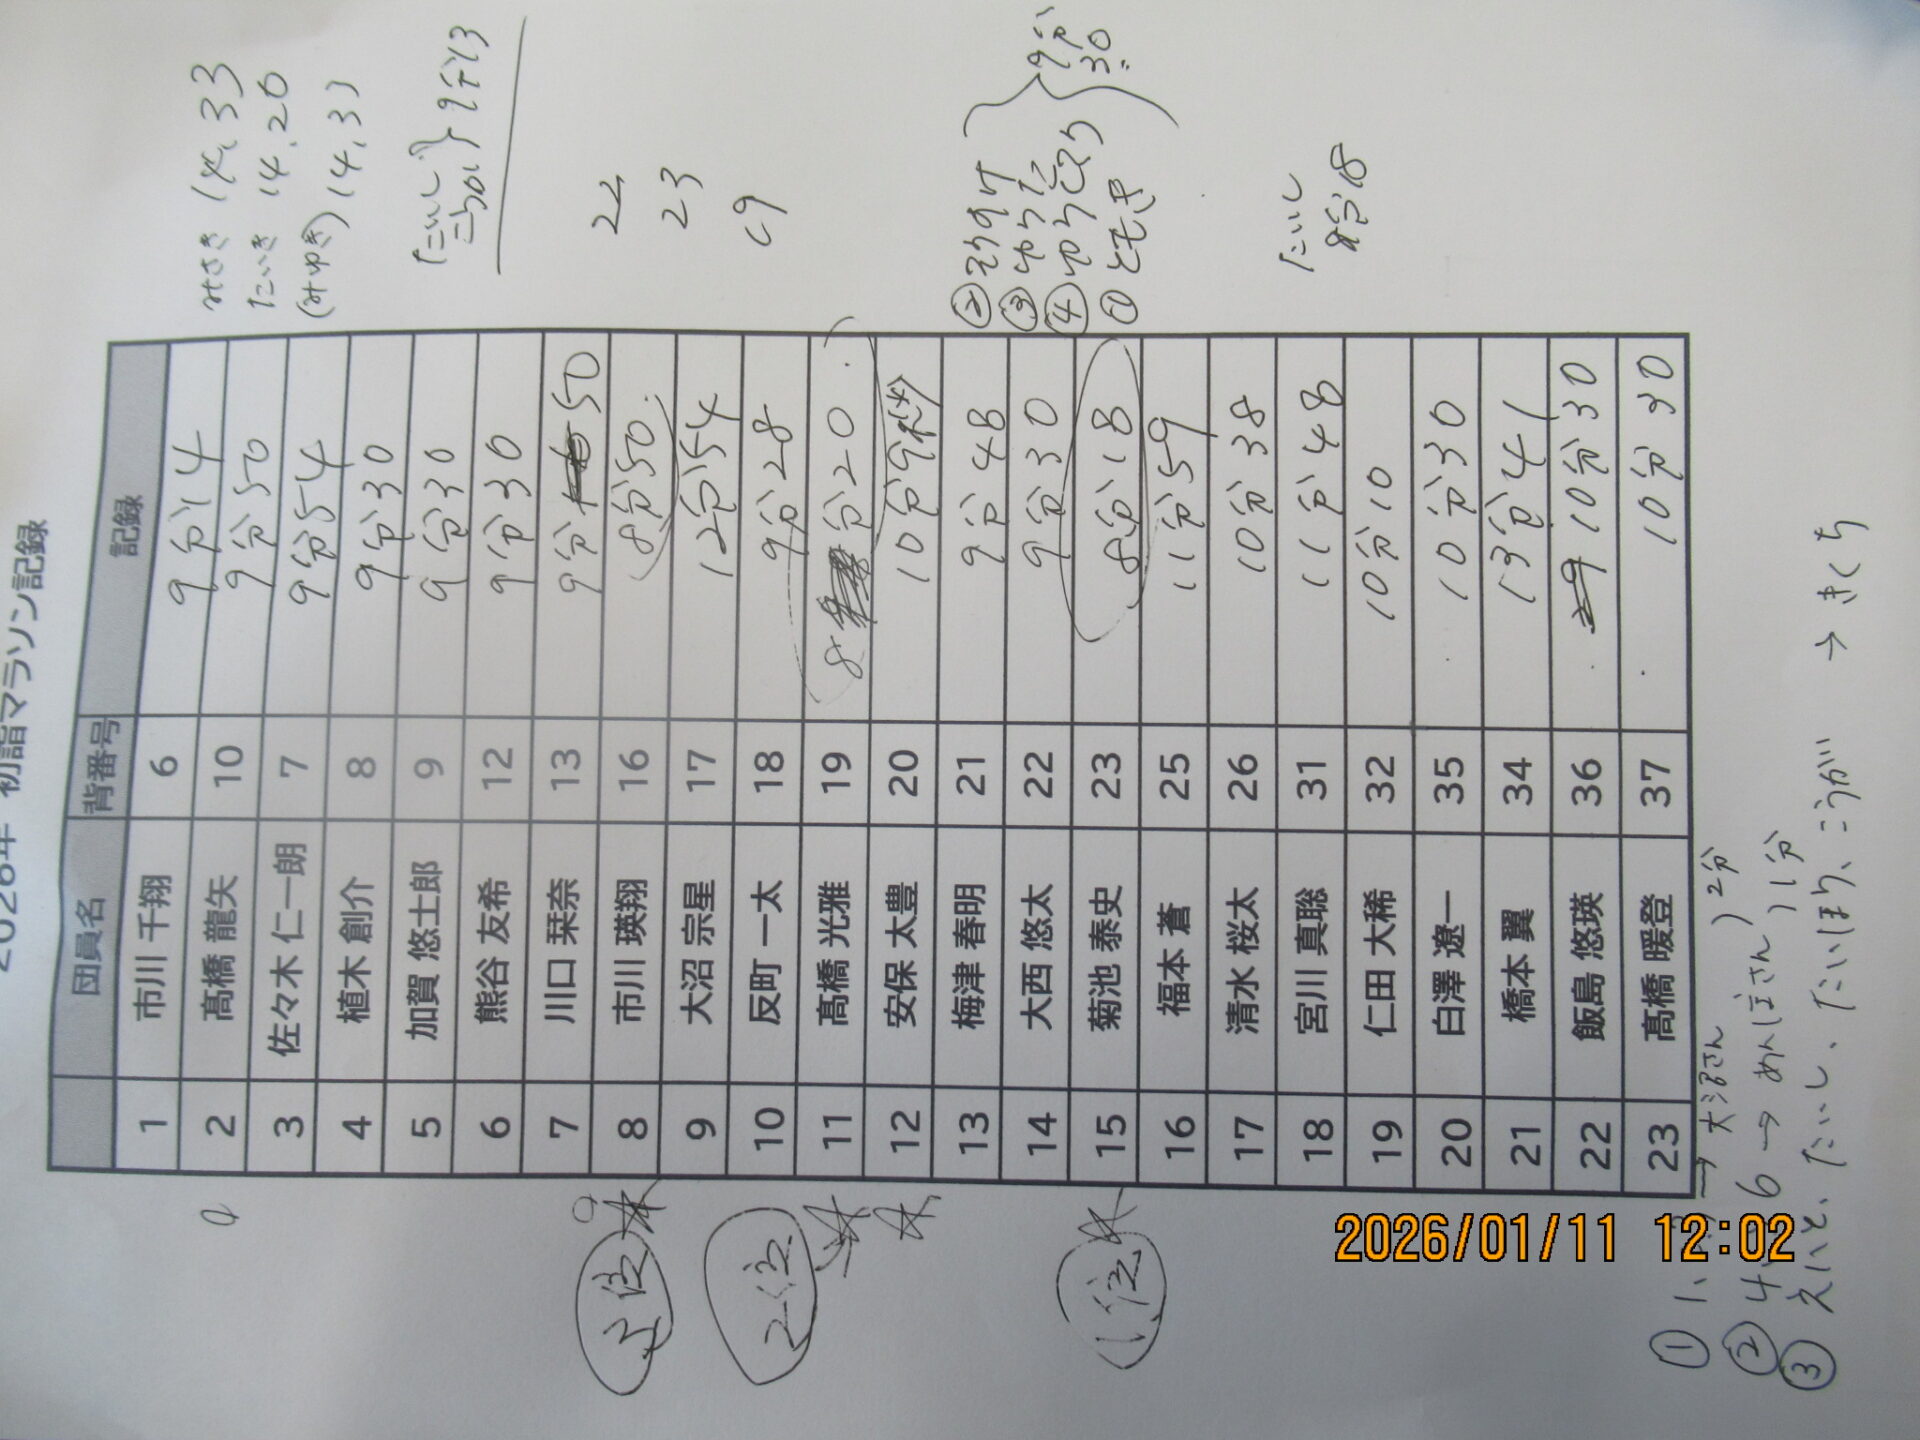 2026年 初詣マラソン記録
団員名 背番号 記録
1 市川 千翔 6 9分14
2 髙橋 龍矢 10 9分50
3 佐々木 仁一朗 7 9分54
4 植木 創介 8 9分30
5 加賀 悠士郎 9 9分30
6 熊谷 友希 12 9分30
7 川口 栞奈 13 9分50
8 市川 瑛翔 16 8分50
9 大沼 宗星 17 12分54
10 反町 一太 18 9分28
11 髙橋 光雅 19 8分20
12 安保 太豊 20 10分9秒
13 梅津 春明 21 9分48
14 大西 悠太 22 9分30
15 菊池 泰史 23 8分18
16 福本 蒼 25 11分59
17 清水 桜太 26 10分38
18 宮川 真聡 31 11分48
19 仁田 大稀 32 10分10
20 白澤 遼一 35 10分30
21 橋本 翼 34 13分41
22 飯島 悠瑛 36 10分30
23 髙橋 暖登 37 10分30
みさき 14.33
たいき 14.20
(みゆき) 14.31
たいし
9分13
22
23
19
②そうすけ
③ゆうた
④ゆうじろう
①ともき
9分30
たいし
8分18
3位
2位
1位
① 1、 → 大沼さん 12分
② 4、6 → あんぼさん 11分
③ えいと、たいし、たいほう、こうが → きくち
2026/01/11 12:02